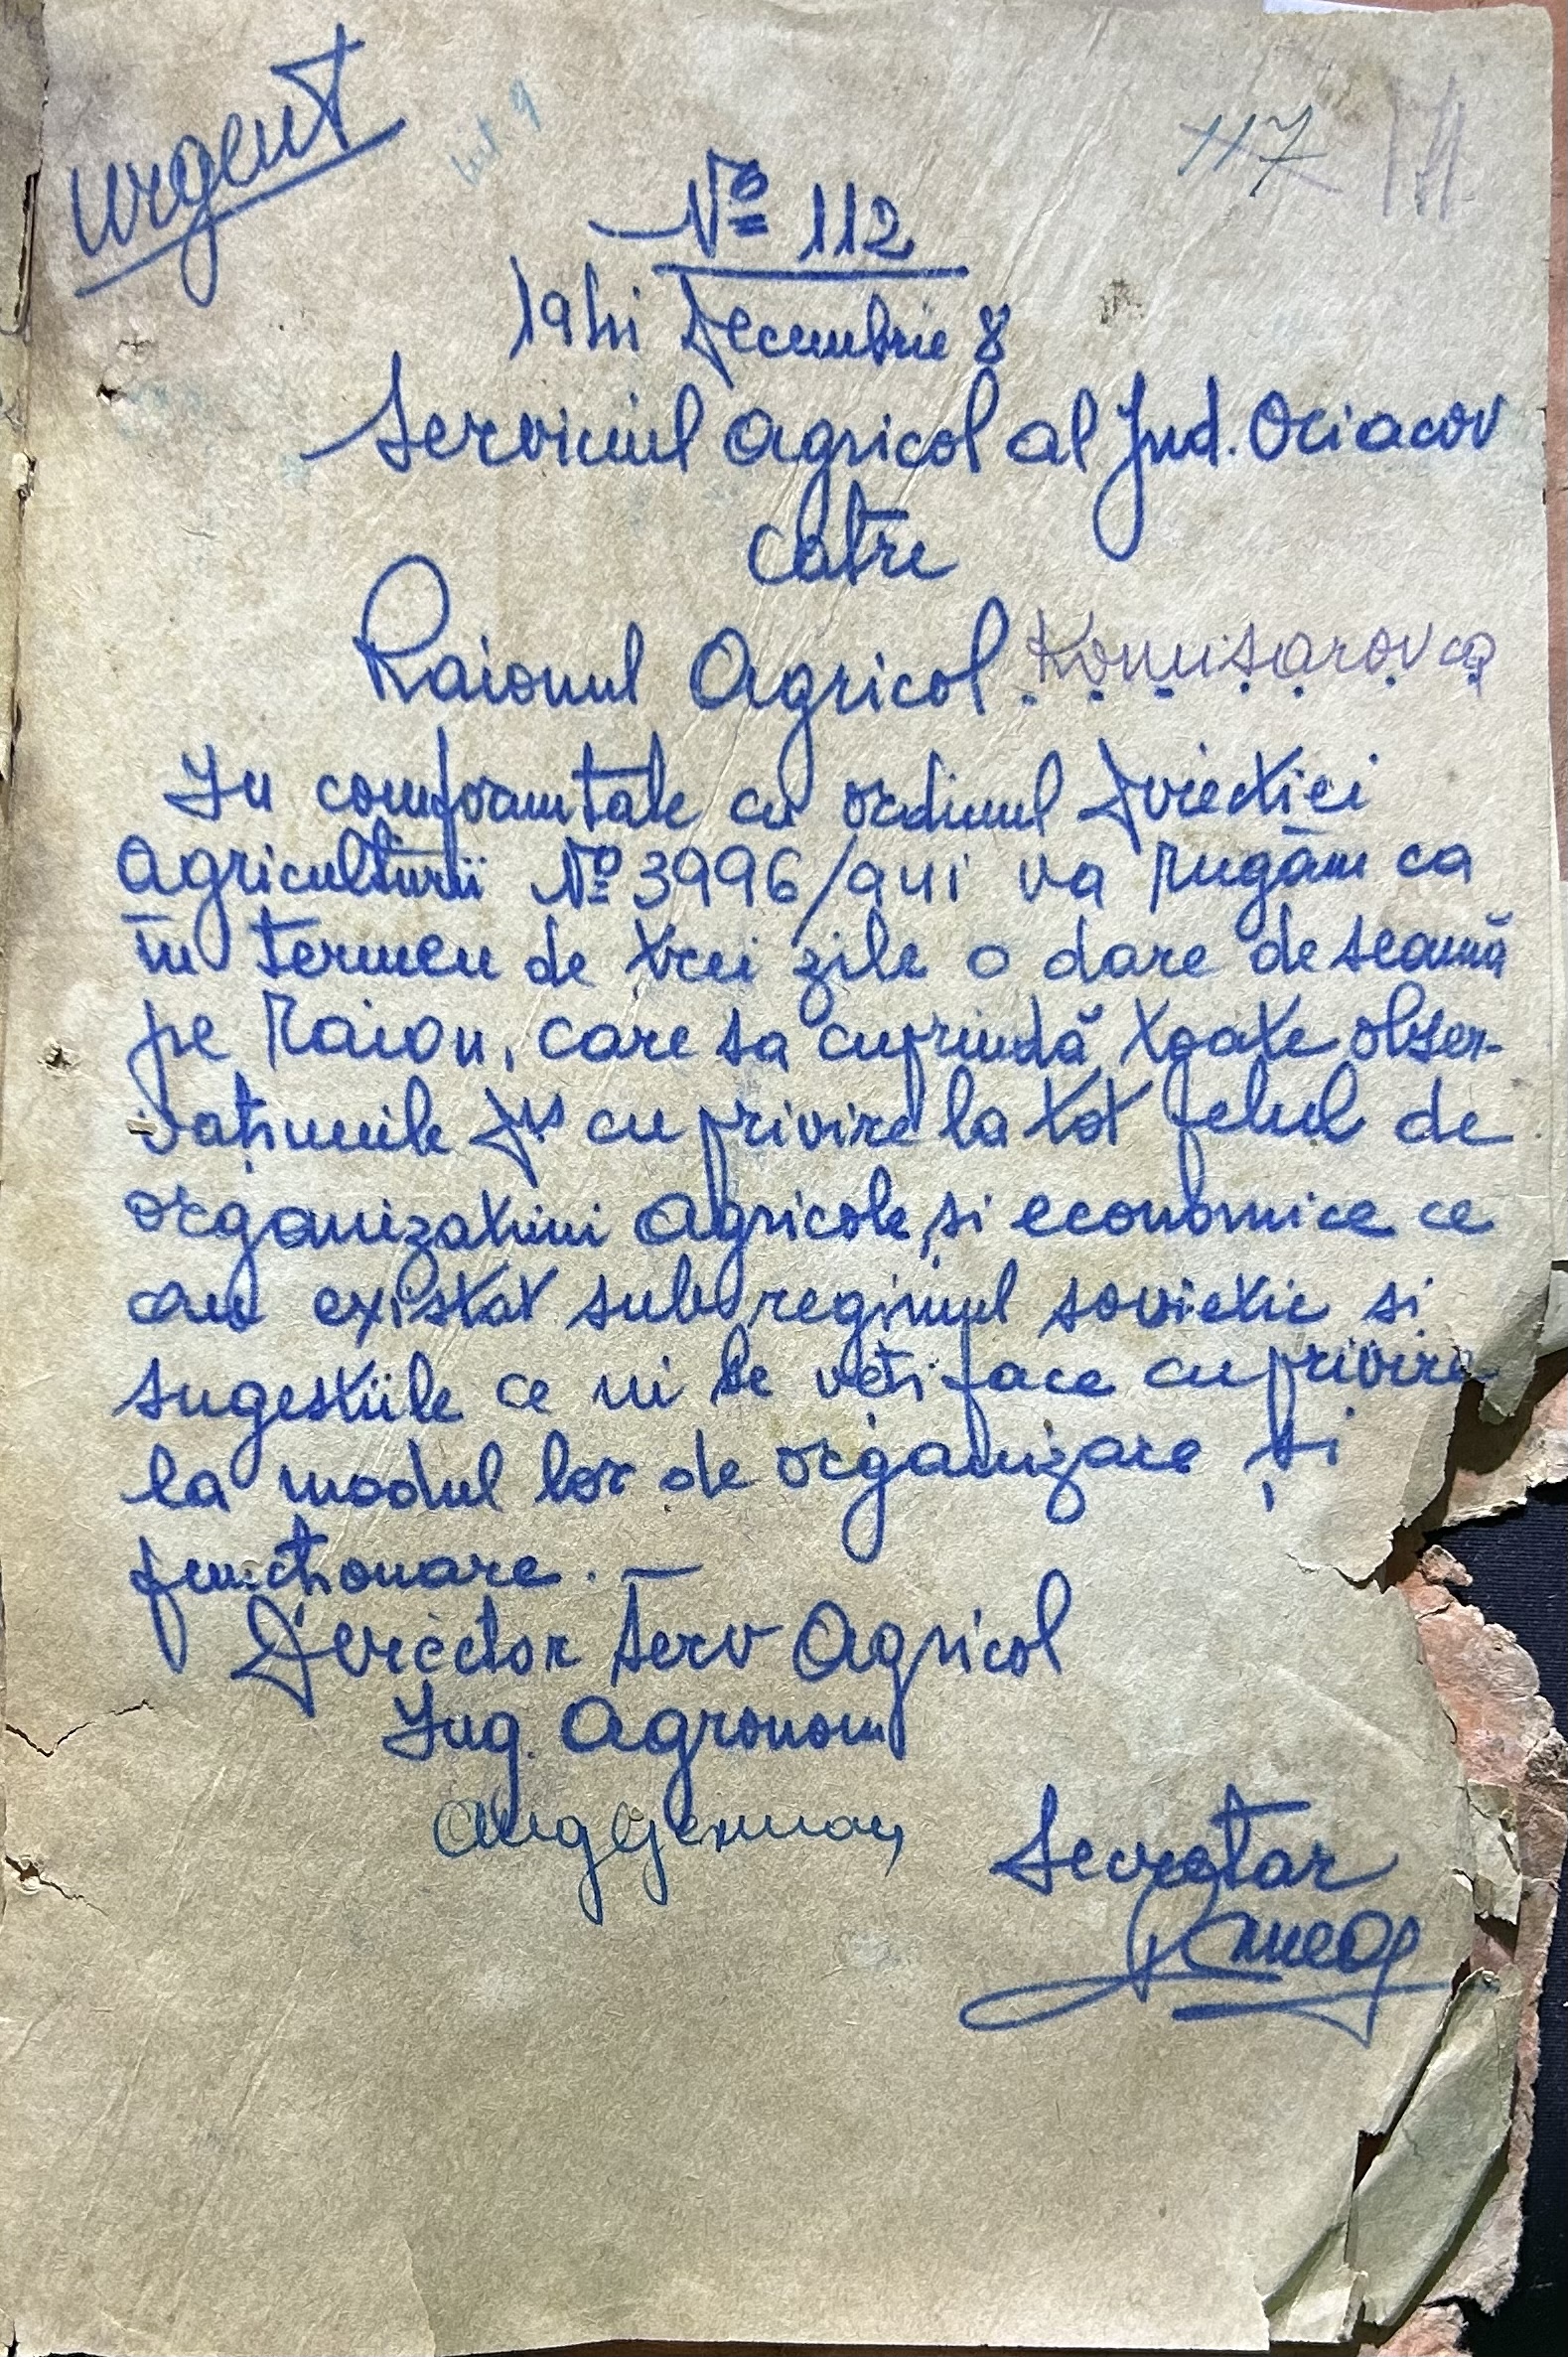 Urgent
117 171
№ 112
1941 Decembrie 8
Serviciul Agricol al Jud. Ociacov
Catre
Raionul Agricol Komisarovca
In comformtate cu ordinul Direcției
Agriculturii № 3996/941 va rugăm ca
în termen de trei zile o dare de seamă
pe Raion, care sa cuprindă toate obser-
vațiunile Dvs cu privire la tot felul de
organizatiuni agricole și economice ce
au existat sub regimul sovietic si
sugestiile ce ni le veți face cu privire
la modul lor de organizare și
functionare. —
Director Serv Agricol
Ing. Agronom
Aug German
Secretar